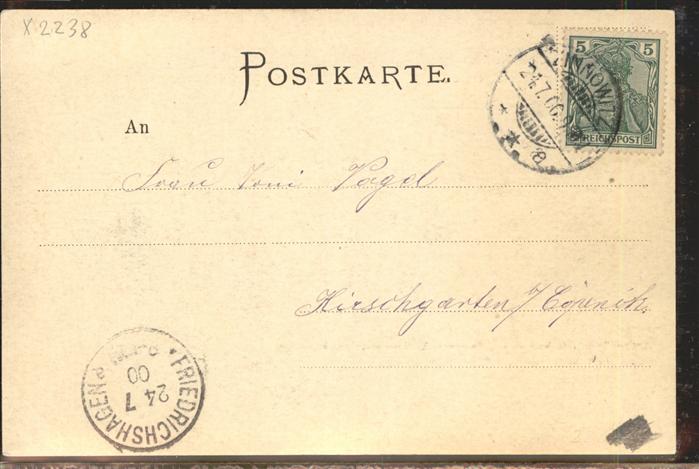 X 2238
POSTKARTE.
5 5
REICHSPOST
ZINNOWITZ
24.7.00
An
Frau Toni Vogel
Hirschgarten / Cöpenick
FRIEDRICHSHAGEN
24 7
00